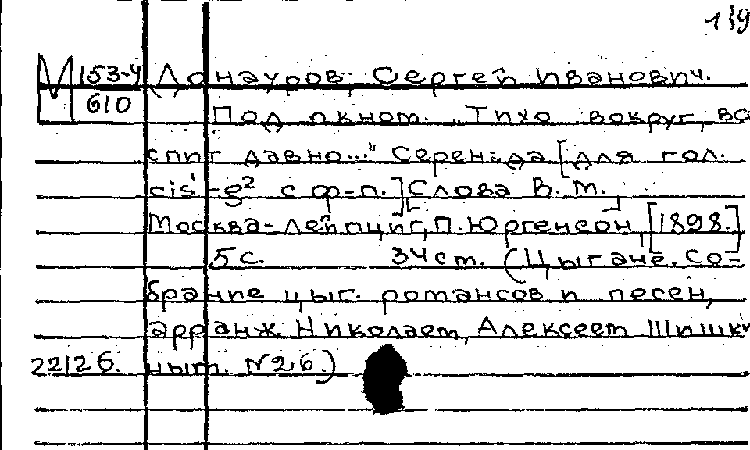 139
М 153-4 (Донауров, Сергей Иванович.
610 Под окном. „Тихо вокруг, все
спит давно..." Серенада [для гол.
cis¹-g² с ф-п.] [Слова В. М.]
Москва-Лейпциг, П. Юргенсон, [1898.]
5 с. 34 cm. (Цыгане. Со-
брание цыг. романсов и песен,
арранж. Николаем Алексеем Шишки
22126. ным. N26.)